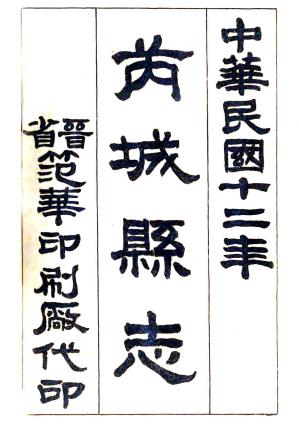 中華民國十二年
芮城縣志
晉省范華印刷廠代印